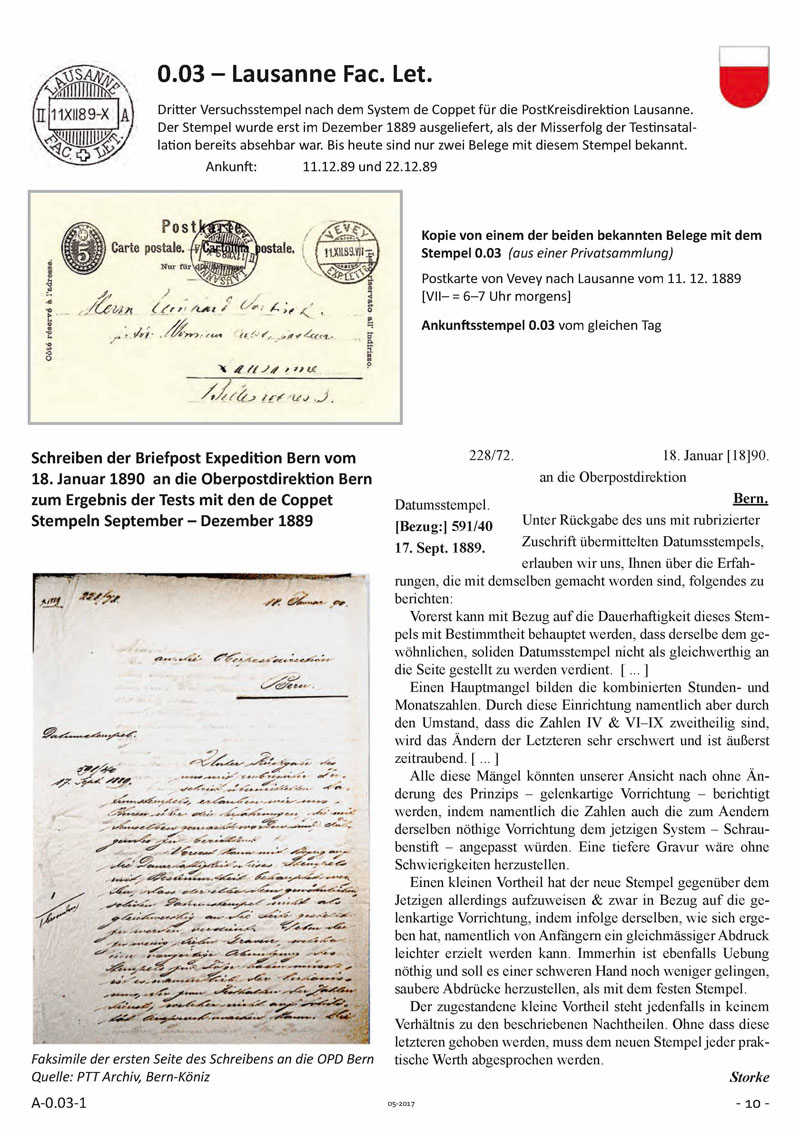 0.03 – Lausanne Fac. Let.
LAUSANNE
II 11XII89-X A
FAC. LET.
Dritter Versuchsstempel nach dem System de Coppet für die PostKreisdirektion Lausanne.
Der Stempel wurde erst im Dezember 1889 ausgeliefert, als der Misserfolg der Testinsatal-
lation bereits absehbar war. Bis heute sind nur zwei Belege mit diesem Stempel bekannt.
Ankunft: 11.12.89 und 22.12.89
Postkarte
Carte postale. Cartolina postale.
Nur für
5
VEVEY
11XII89.VII
EXP.LETT.
Côté réservé à l'adresse.
riservato all' indirizzo.
Herrn
Monsieur
Lausanne
Kopie von einem der beiden bekannten Belege mit dem
Stempel 0.03 (aus einer Privatsammlung)
Postkarte von Vevey nach Lausanne vom 11. 12. 1889
[VII– = 6–7 Uhr morgens]
Ankunftsstempel 0.03 vom gleichen Tag
Schreiben der Briefpost Expedition Bern vom
18. Januar 1890 an die Oberpostdirektion Bern
zum Ergebnis der Tests mit den de Coppet
Stempeln September – Dezember 1889
228/72. 18. Januar 90.
an die Oberpostdirection
Bern.
Datumstempel.
591/40
17. Sept. 1889.
Unter Rückgabe des
uns mit rubrizirter Zu-
schrift übermittelten Da-
tumstempels, erlauben wir uns,
Ihnen über die Erfahrungen, die mit
demselben gemacht worden sind, fol-
gendes zu berichten:
Vorerst kann mit Bezug auf
die Dauerhaftigkeit dieses Stempels
mit Bestimmtheit behauptet wer-
den, dass derselbe dem gewöhnlichen,
soliden Datumstempel nicht als
gleichwerthig an die Seite gestellt
zu werden verdient.
Faksimile der ersten Seite des Schreibens an die OPD Bern
Quelle: PTT Archiv, Bern-Köniz
228/72. 18. Januar [18]90.
an die Oberpostdirektion
Bern.
Datumsstempel.
[Bezug:] 591/40
17. Sept. 1889.
Unter Rückgabe des uns mit rubrizierter
Zuschrift übermittelten Datumsstempels,
erlauben wir uns, Ihnen über die Erfah-
rungen, die mit demselben gemacht worden sind, folgendes zu
berichten:
Vorerst kann mit Bezug auf die Dauerhaftigkeit dieses Stem-
pels mit Bestimmtheit behauptet werden, dass derselbe dem ge-
wöhnlichen, soliden Datumsstempel nicht als gleichwerthig an
die Seite gestellt zu werden verdient. [ ... ]
Einen Hauptmangel bilden die kombinierten Stunden- und
Monatszahlen. Durch diese Einrichtung namentlich aber durch
den Umstand, dass die Zahlen IV & VI–IX zweitheilig sind,
wird das Ändern der Letzteren sehr erschwert und ist äußerst
zeitraubend. [ ... ]
Alle diese Mängel könnten unserer Ansicht nach ohne Än-
derung des Prinzips – gelenkartige Vorrichtung – berichtigt
werden, indem namentlich die Zahlen auch die zum Aendern
derselben nöthige Vorrichtung dem jetzigen System – Schrau-
benstift – angepasst würden. Eine tiefere Gravur wäre ohne
Schwierigkeiten herzustellen.
Einen kleinen Vortheil hat der neue Stempel gegenüber dem
Jetzigen allerdings aufzuweisen & zwar in Bezug auf die ge-
lenkartige Vorrichtung, indem infolge derselben, wie sich erge-
ben hat, namentlich von Anfängern ein gleichmässiger Abdruck
leichter erzielt werden kann. Immerhin ist ebenfalls Uebung
nöthig und soll es einer schweren Hand noch weniger gelingen,
saubere Abdrücke herzustellen, als mit dem festen Stempel.
Der zugestandene kleine Vortheil steht jedenfalls in keinem
Verhältnis zu den beschriebenen Nachtheilen. Ohne dass diese
letzteren gehoben werden, muss dem neuen Stempel jeder prak-
tische Werth abgesprochen werden.
Storke
A-0.03-1
05-2017
- 10 -